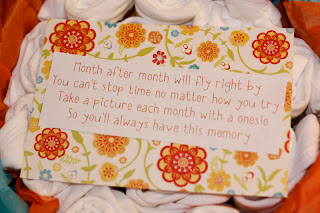 Month after month will fly right by
You can't stop time no matter how you try
Take a picture each month with a onesie
So you'll always have this memory